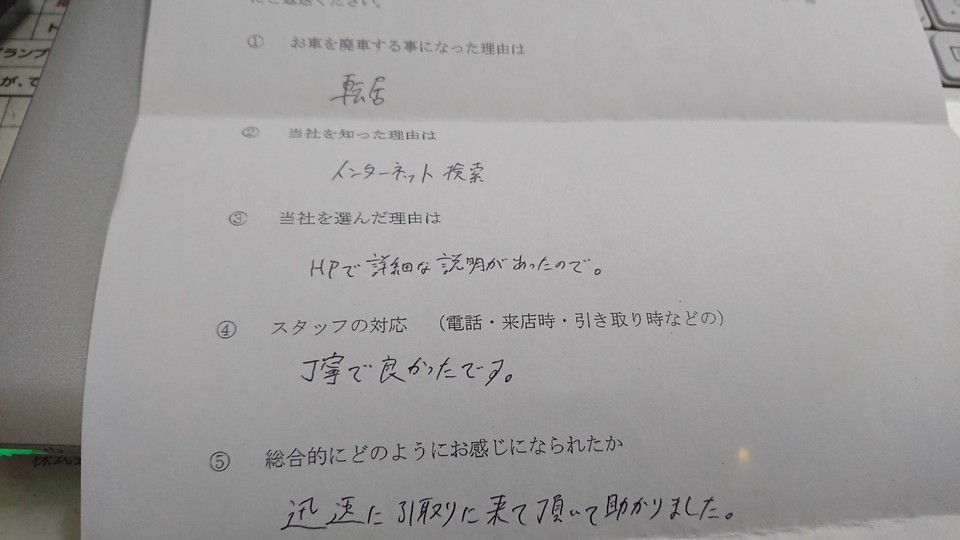 にご返送ください。
① お車を廃車する事になった理由は
転居
② 当社を知った理由は
インターネット検索
③ 当社を選んだ理由は
HPで詳細な説明があったので。
④ スタッフの対応 （電話・来店時・引き取り時などの）
丁寧で良かったです。
⑤ 総合的にどのようにお感じになられたか
迅速に引取りに来て頂いて助かりました。